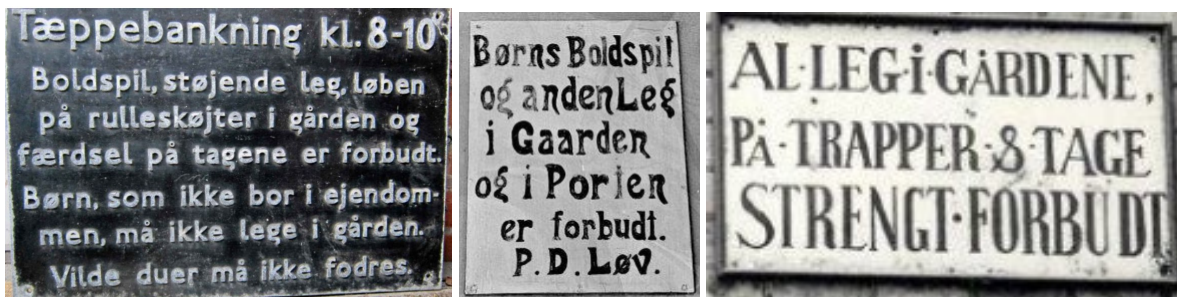 Tæppebankning kl. 8-10
Boldspil, støjende leg, løben
på rulleskøjter i gården og
færdsel på tagene er forbudt.
Børn, som ikke bor i ejendom-
men, må ikke lege i gården.
Vilde duer må ikke fodres.
Børns Boldspil
og anden Leg
i Gaarden
og i Porten
er forbudt.
P. D. Løv.
AL·LEG·I·GÅRDENE,
PÅ·TRAPPER·&·TAGE
STRENGT·FORBUDT